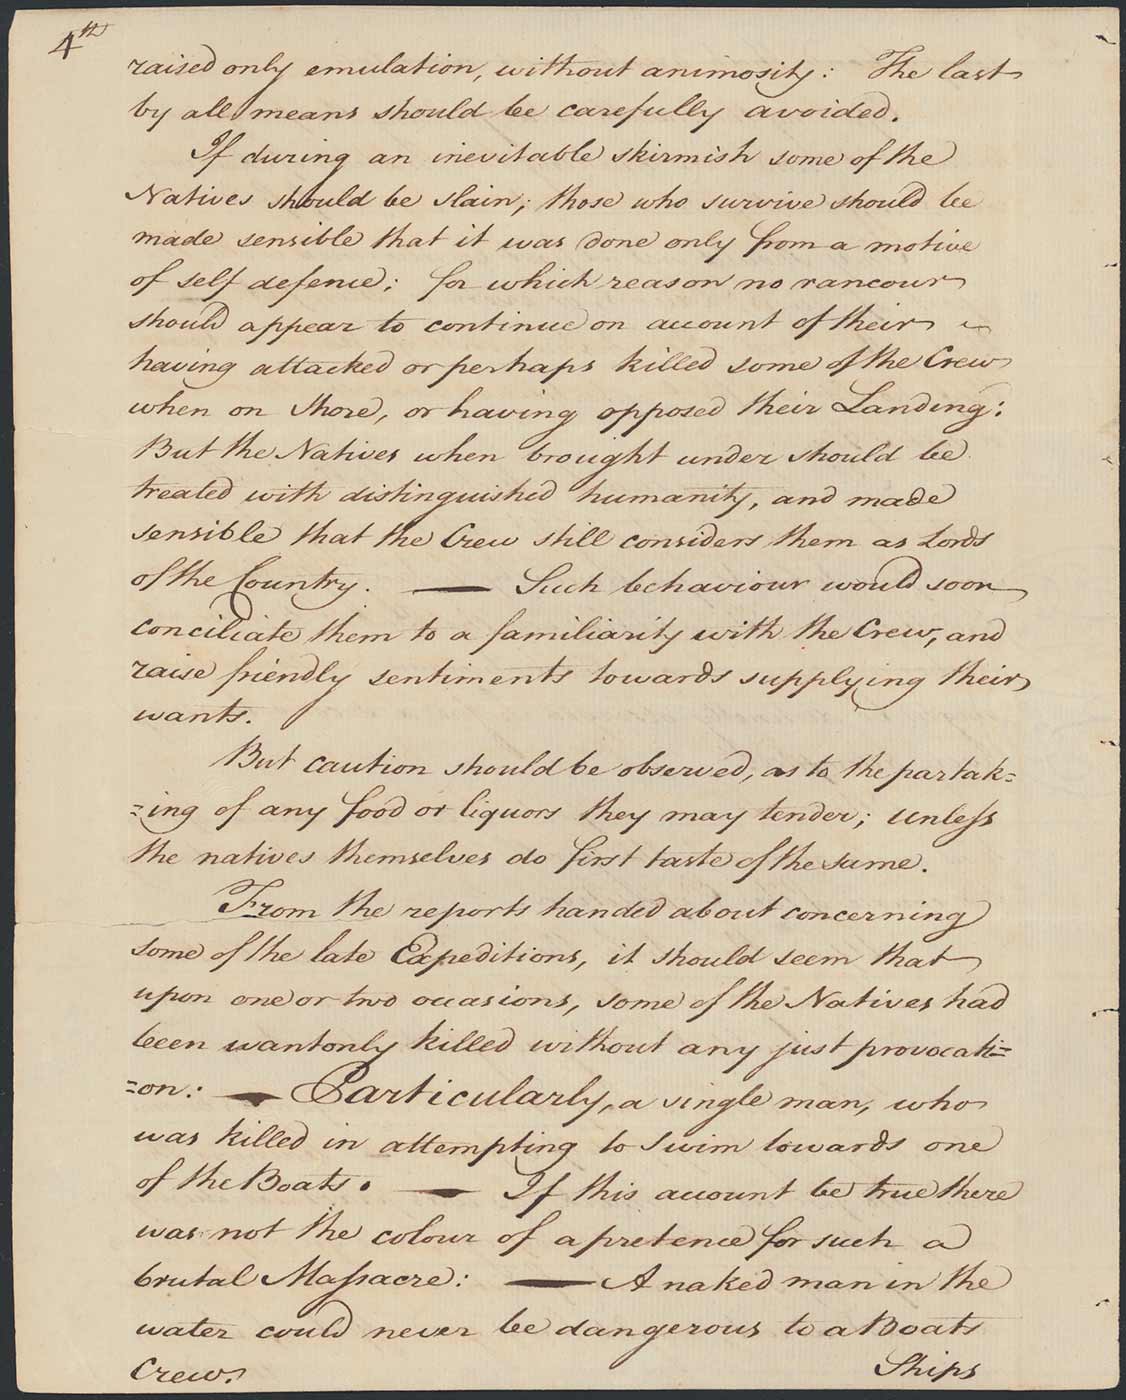 4th
raised only emulation, without animosity: The last
by all means should be carefully avoided.
If during an inevitable skirmish some of the
Natives should be slain; those who survive should be
made sensible that it was done only from a motive
of self defence; for which reason no rancour
should appear to continue on account of their
having attacked or perhaps killed some of the Crew
when on shore, or having opposed their Landing:
But the Natives when brought under should be
treated with distinguished humanity, and made
sensible that the Crew still considers them as Lords
of the Country. — Such behaviour would soon
conciliate them to a familiarity with the Crew, and
raise friendly sentiments towards supplying their
wants.
But caution should be observed, as to the partak=
=ing of any food or liquors they may tender; unless
the natives themselves do first taste of the same.
From the reports handed about concerning
some of the late Expeditions, it should seem that
upon one or two occasions, some of the Natives had
been wantonly killed without any just provocati=
=on: — Particularly, a single man, who
was killed in attempting to swim towards one
of the Boats. — If this account be true there
was not the colour of a pretence for such a
brutal Massacre: — A naked man in the
water could never be dangerous to a Boats
Crew.
Ships